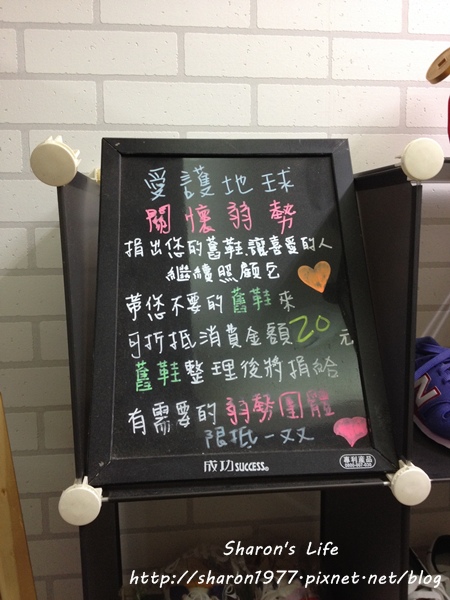 愛護地球
關懷弱勢
捐出您的舊鞋,讓喜愛的人
繼續照顧它
帶您不要的舊鞋來
可折抵消費金額20元
舊鞋整理後將捐給
有需要的弱勢團體
限抵一双
成功SUCCESS®
專利產品
0800-007-035
N
Sharon's Life
http://sharon1977.pixnet.net/blog